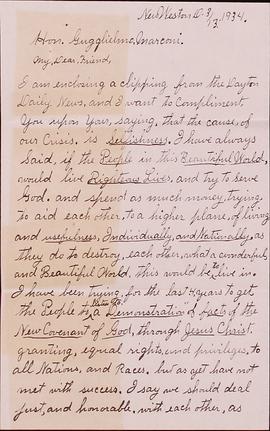 New Weston O. 3/13. 1934.
Hon. Gugglielmo, Marconi.
My, Dear, Friend,
I am enclosing a clipping from the Dayton
Daily News, and I want to Compliment
You upon Your, saying, that the cause of
our Crisis, is Selfishness. I have always
Said, if the People in this Beautiful World,
would live Righteous Lives, and try to serve
God. and spend as much money, trying,
to aid each other, to a higher, plane, of living
and usefulness, Individually, and Nationally, as
they do to destroy, each other, what a wonderful,
and Beautiful World, this would be to live in.
I have been trying, for the last years to get
the People a Demonstration of facts of the
New Covenant of God, through Jesus Christ.
granting, equal rights, and privileges, to
all Nations, and Races. but as yet have
not met with success. I say we should deal
just, and honorable, with each other, as